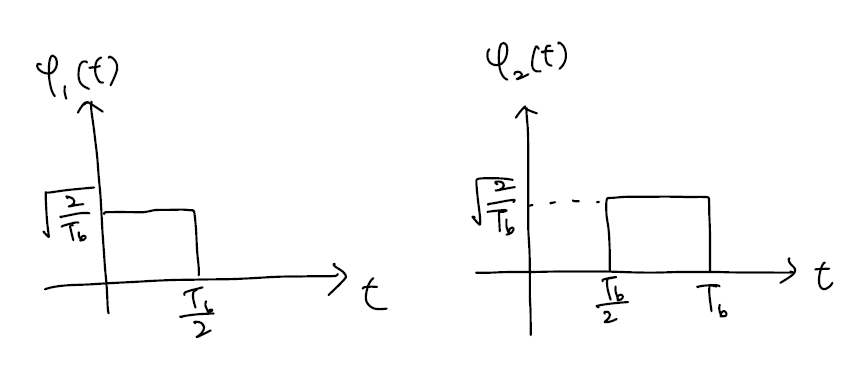 φ₁(t)
√(2/T_b)
T_b/2
t
φ₂(t)
√(2/T_b)
T_b/2
T_b
t